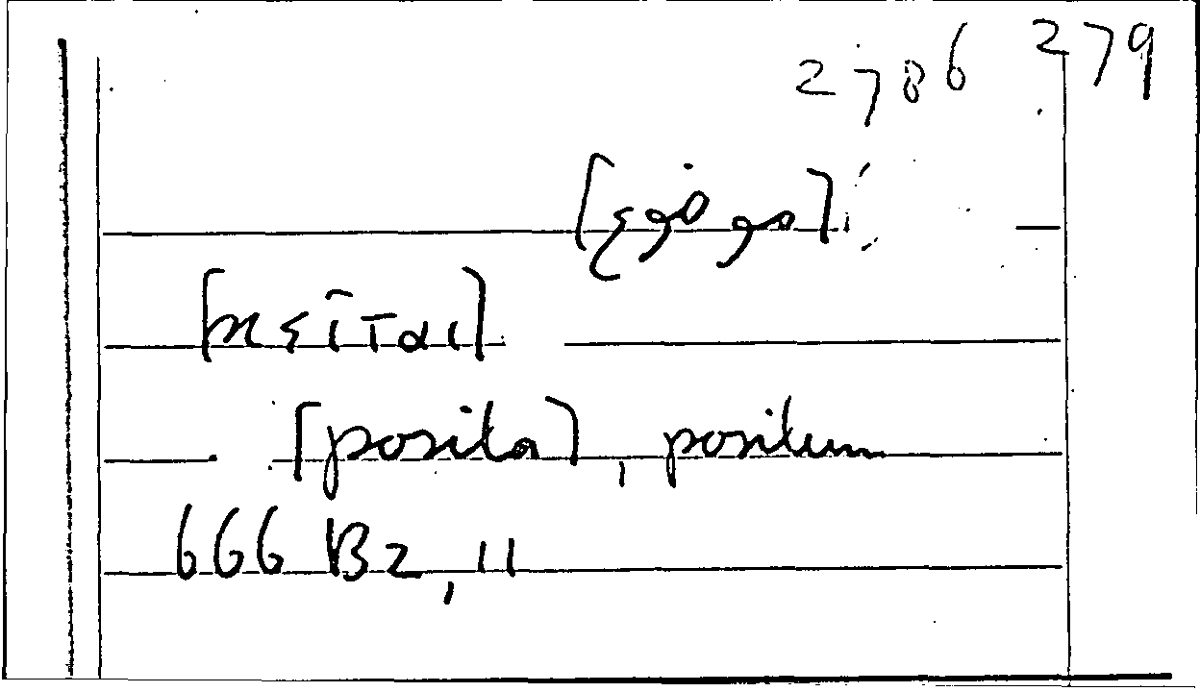 2786 279
[κεῖται]
[posita], positum
666 B2, 11